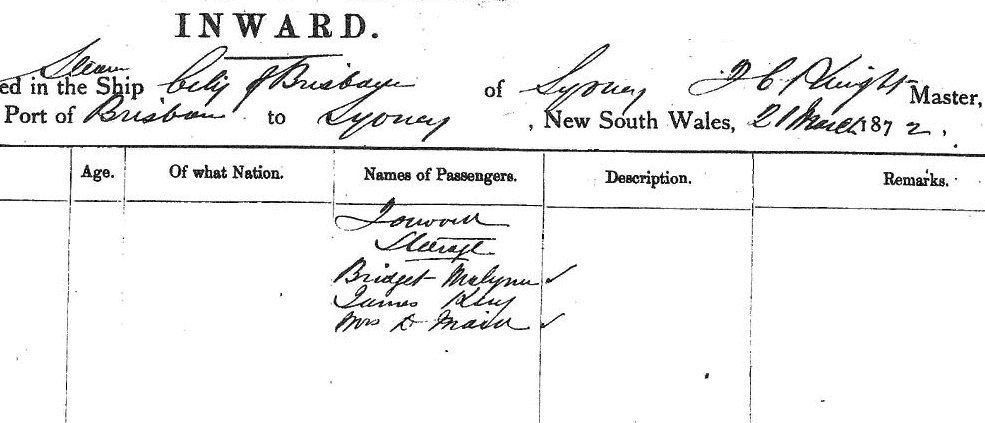 INWARD.
Steam
ed in the Ship City of Brisbane of Sydney Knight Master,
Port of Brisbane to Sydney, New South Wales, 21 March 1872.
Age. Of what Nation. Names of Passengers. Description. Remarks.
Steerage
Bridget
James King
Mrs D